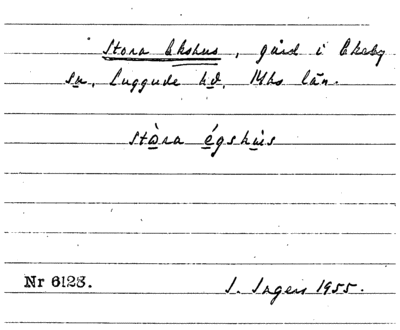 Stora Ekshus, gård i Ekeby
sn, Luggude hd, Mhs län.
stòra égshùs
Nr 6123.
I. Ingers 1955.